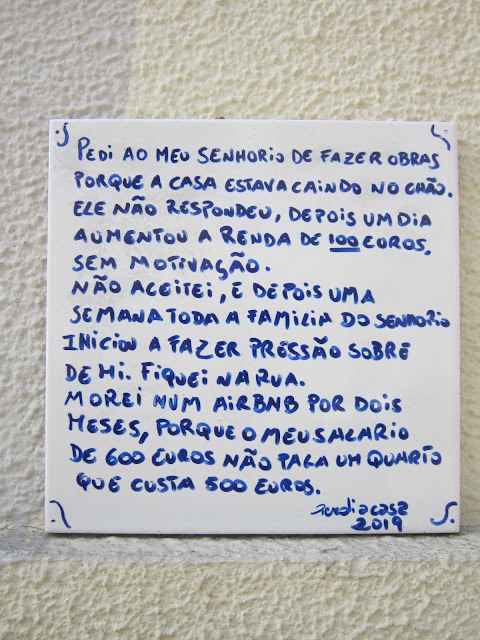 PEDI AO MEU SENHORIO DE FAZER OBRAS
PORQUE A CASA ESTAVA CAINDO NO CHÃO.
ELE NÃO RESPONDEU, DEPOIS UM DIA
AUMENTOU A RENDA DE 100 EUROS,
SEM MOTIVAÇÃO.
NÃO ACEITEI, E DEPOIS UMA
SEMANA TODA A FAMILIA DO SENHORIO
INICIOU A FAZER PRESSÃO SOBRE
DE MI. FIQUEI NA RUA.
MOREI NUM AIRBNB POR DOIS
MESES, PORQUE O MEU SALARIO
DE 600 EUROS NÃO PAGA UM QUARTO
QUE CUSTA 500 EUROS.
2019